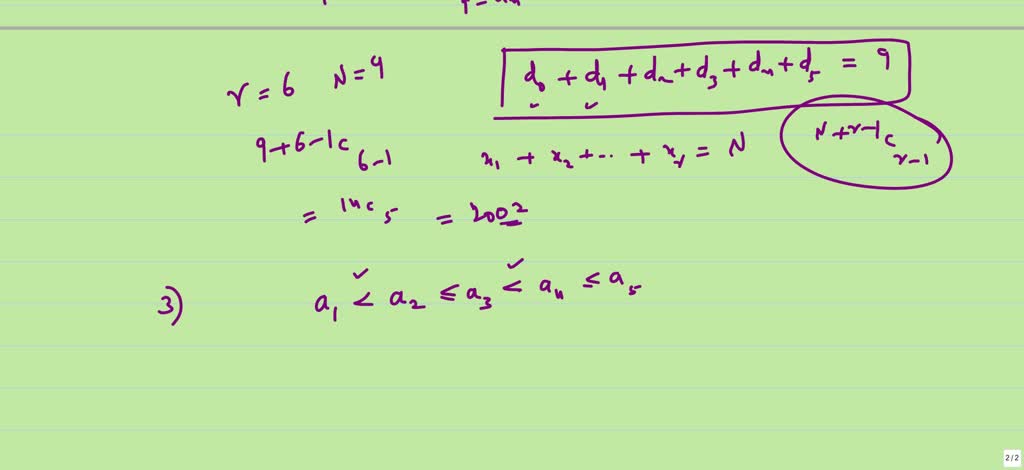 r = 6 N = 9
d₀ + d₁ + d₂ + d₃ + d₄ + d₅ = 9
9+6-1C₆₋₁
x₁ + x₂ + ... + xᵣ = N
N+r-1Cᵣ₋₁
= 14C₅ = 2002
3) a₁ < a₂ ≤ a₃ < a₄ ≤ a₅
2/2